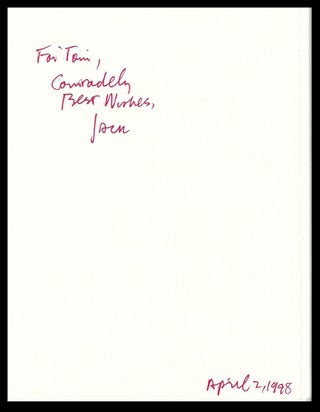 For Tom,
Comradely
Best Wishes,
Jack
April 2, 1998